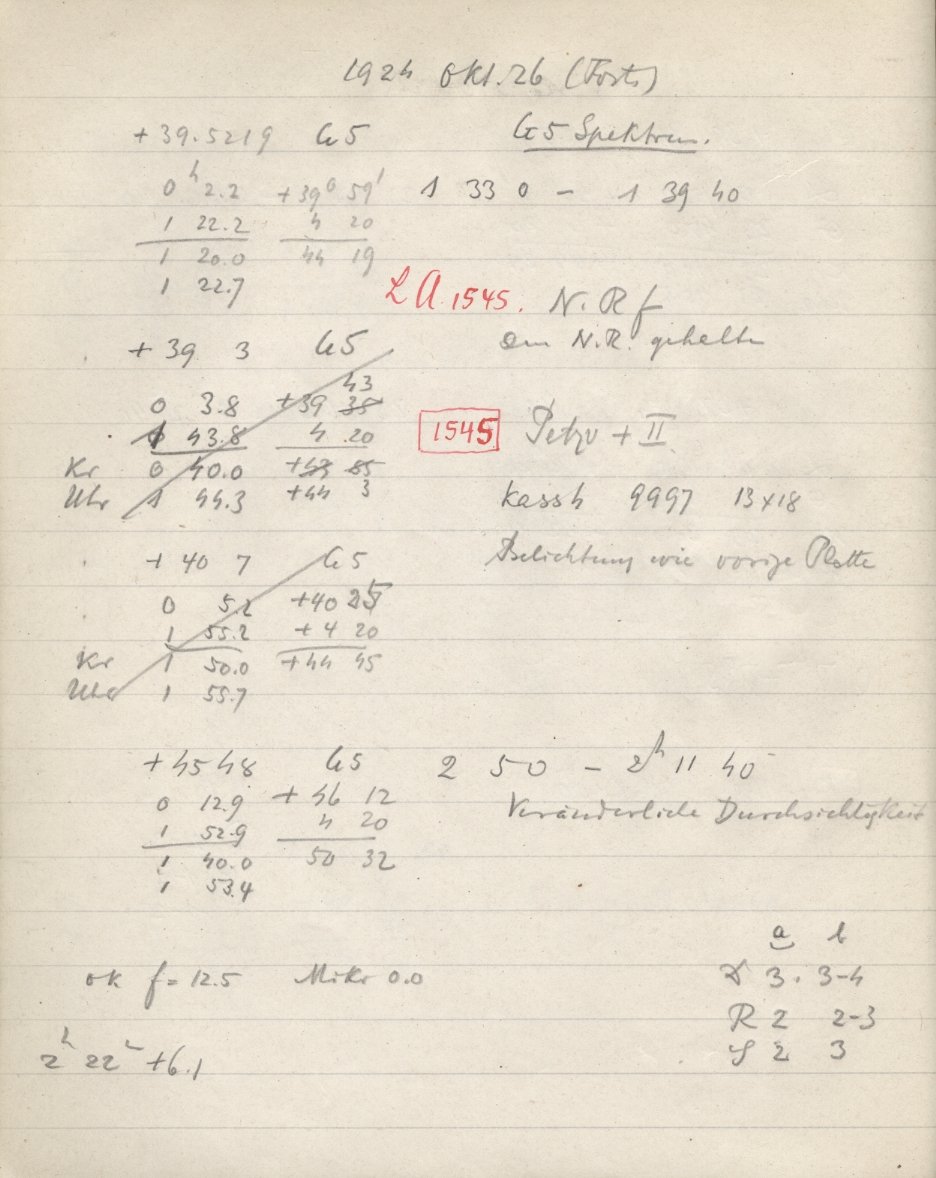 1924 Okt. 26 (Forts)
+39.5219 G5 G5 Spektrum.
0h 2.2 +39° 59' 1 33 0 – 1 39 40
1 22.2 4 20
1 20.0 44 19
1 22.7
LA. 1545. N.R f
+39 3 G5 N.R. gehalten
43
0 3.8 +39 38
1 43.8 4 20 1545 Petzv + II
Kr 0 40.0 +43 85
Uhr 1 44.3 +44 3 Kass h 9997 13x18
+40 7 G5 Belichtung wie vorige Platte
0 5.2 +40 25
1 55.2 +4 20
Kr 1 50.0 +44 45
Uhr 1 55.7
+45 48 G5 2 5 0 – 2h 11 40
0 12.9 +46 12 Veränderliche Durchsichtigkeit
1 52.9 4 20
1 40.0 50 32
1 53.4
a b
ok f = 12.5 Mikr 0.0 3. 3-4
R 2 2-3
2h 22 +6.1 S 2 3